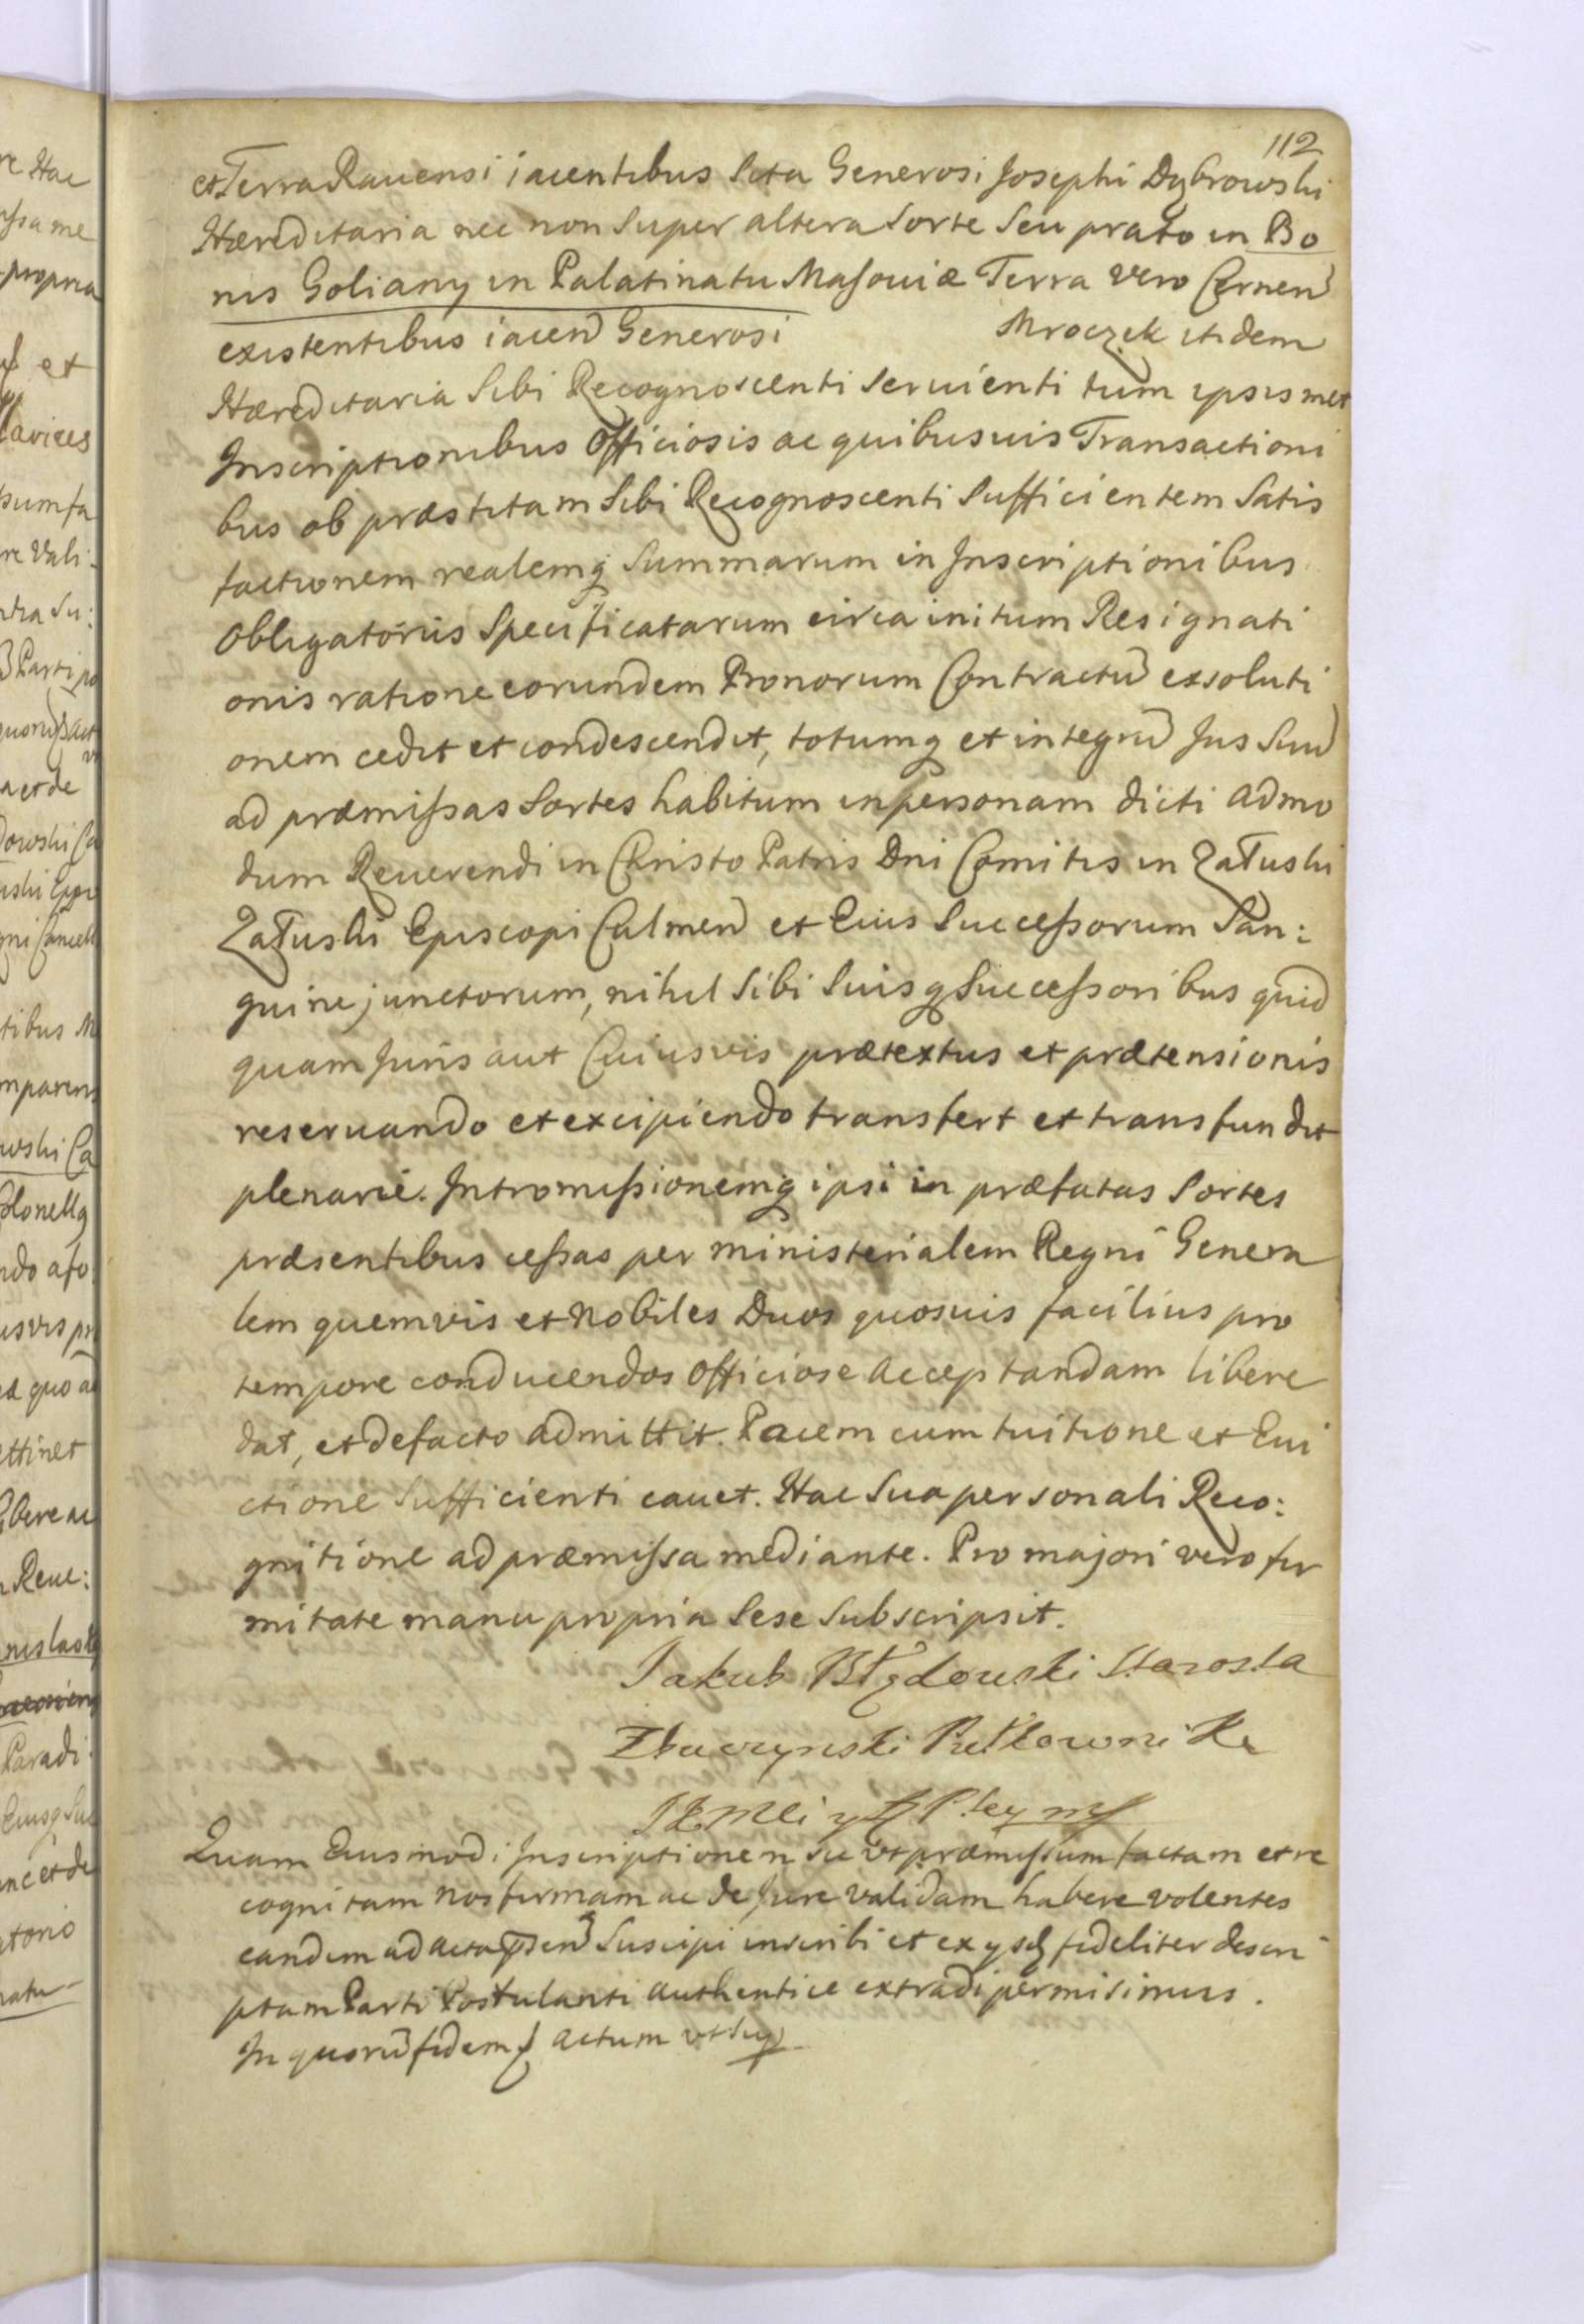 112
et Terra Rauensi iacentibus Sita Generosi Josephi Dąbrowski
Hæreditaria nec non Super altera Sorte Seu prato in Bo
nis Goliany in Palatinatu Masouiæ Terra vero Cernen
existentibus iacen Generosi Mroczek itidem
Hæreditaria Sibi Recognoscenti Seruienti tum ipsismet
Inscriptionibus Officiosis ac quibusuis Transactioni
bus ob præstitam Sibi Recognoscenti Sufficientem Satis
factionem realemq Summarum in Inscriptionibus
Obligatoriis Specificatarum circa initum Resignati
onis ratione eorundem Bonorum Contractu exsoluti
onem cedit et condescendit, totumq et integru Jus Suu
ad præmissas Sortes habitum in personam dicti Admo
dum Reuerendi in Christo Patris Dni Comitis in Załuski
Załuski Episcopi Culmen et Eius Successorum San:
guine junctorum, nihil Sibi Suisq Successoribus quid
quam Juris aut Cuiusvis prætextus et prætensionis
reseruando et excipiendo transfert et transfundit
plenarie. Intromissionemq ipsi in præfatas Sortes
præsentibus cessas per ministerialem Regni Genera
lem quemvis et Nobiles Duos quosuis facilius pro
tempore conducendos Officiose Acceptandam libere
dat, et defacto admittit. Pacem cum tuitione et Eui
ctione Sufficienti cauet. Hac Sua personali Reco:
gnitione ad præmissa mediante. Pro majori vero fir
mitate manu propria Sese Subscripsit.
Jakub Błędowski Starosta
Pułkownik
Quam Eiusmodi Inscriptionem sic vt præmissum factam et re
cognitam nos firmam ac de Jure validam habere volentes
eandem ad acta psen Suscipi inscribi et ex ysd fideliter descri
ptam Parti Postulanti Authentice extradi permisimus.
In quoru fidem Actum vt Sup